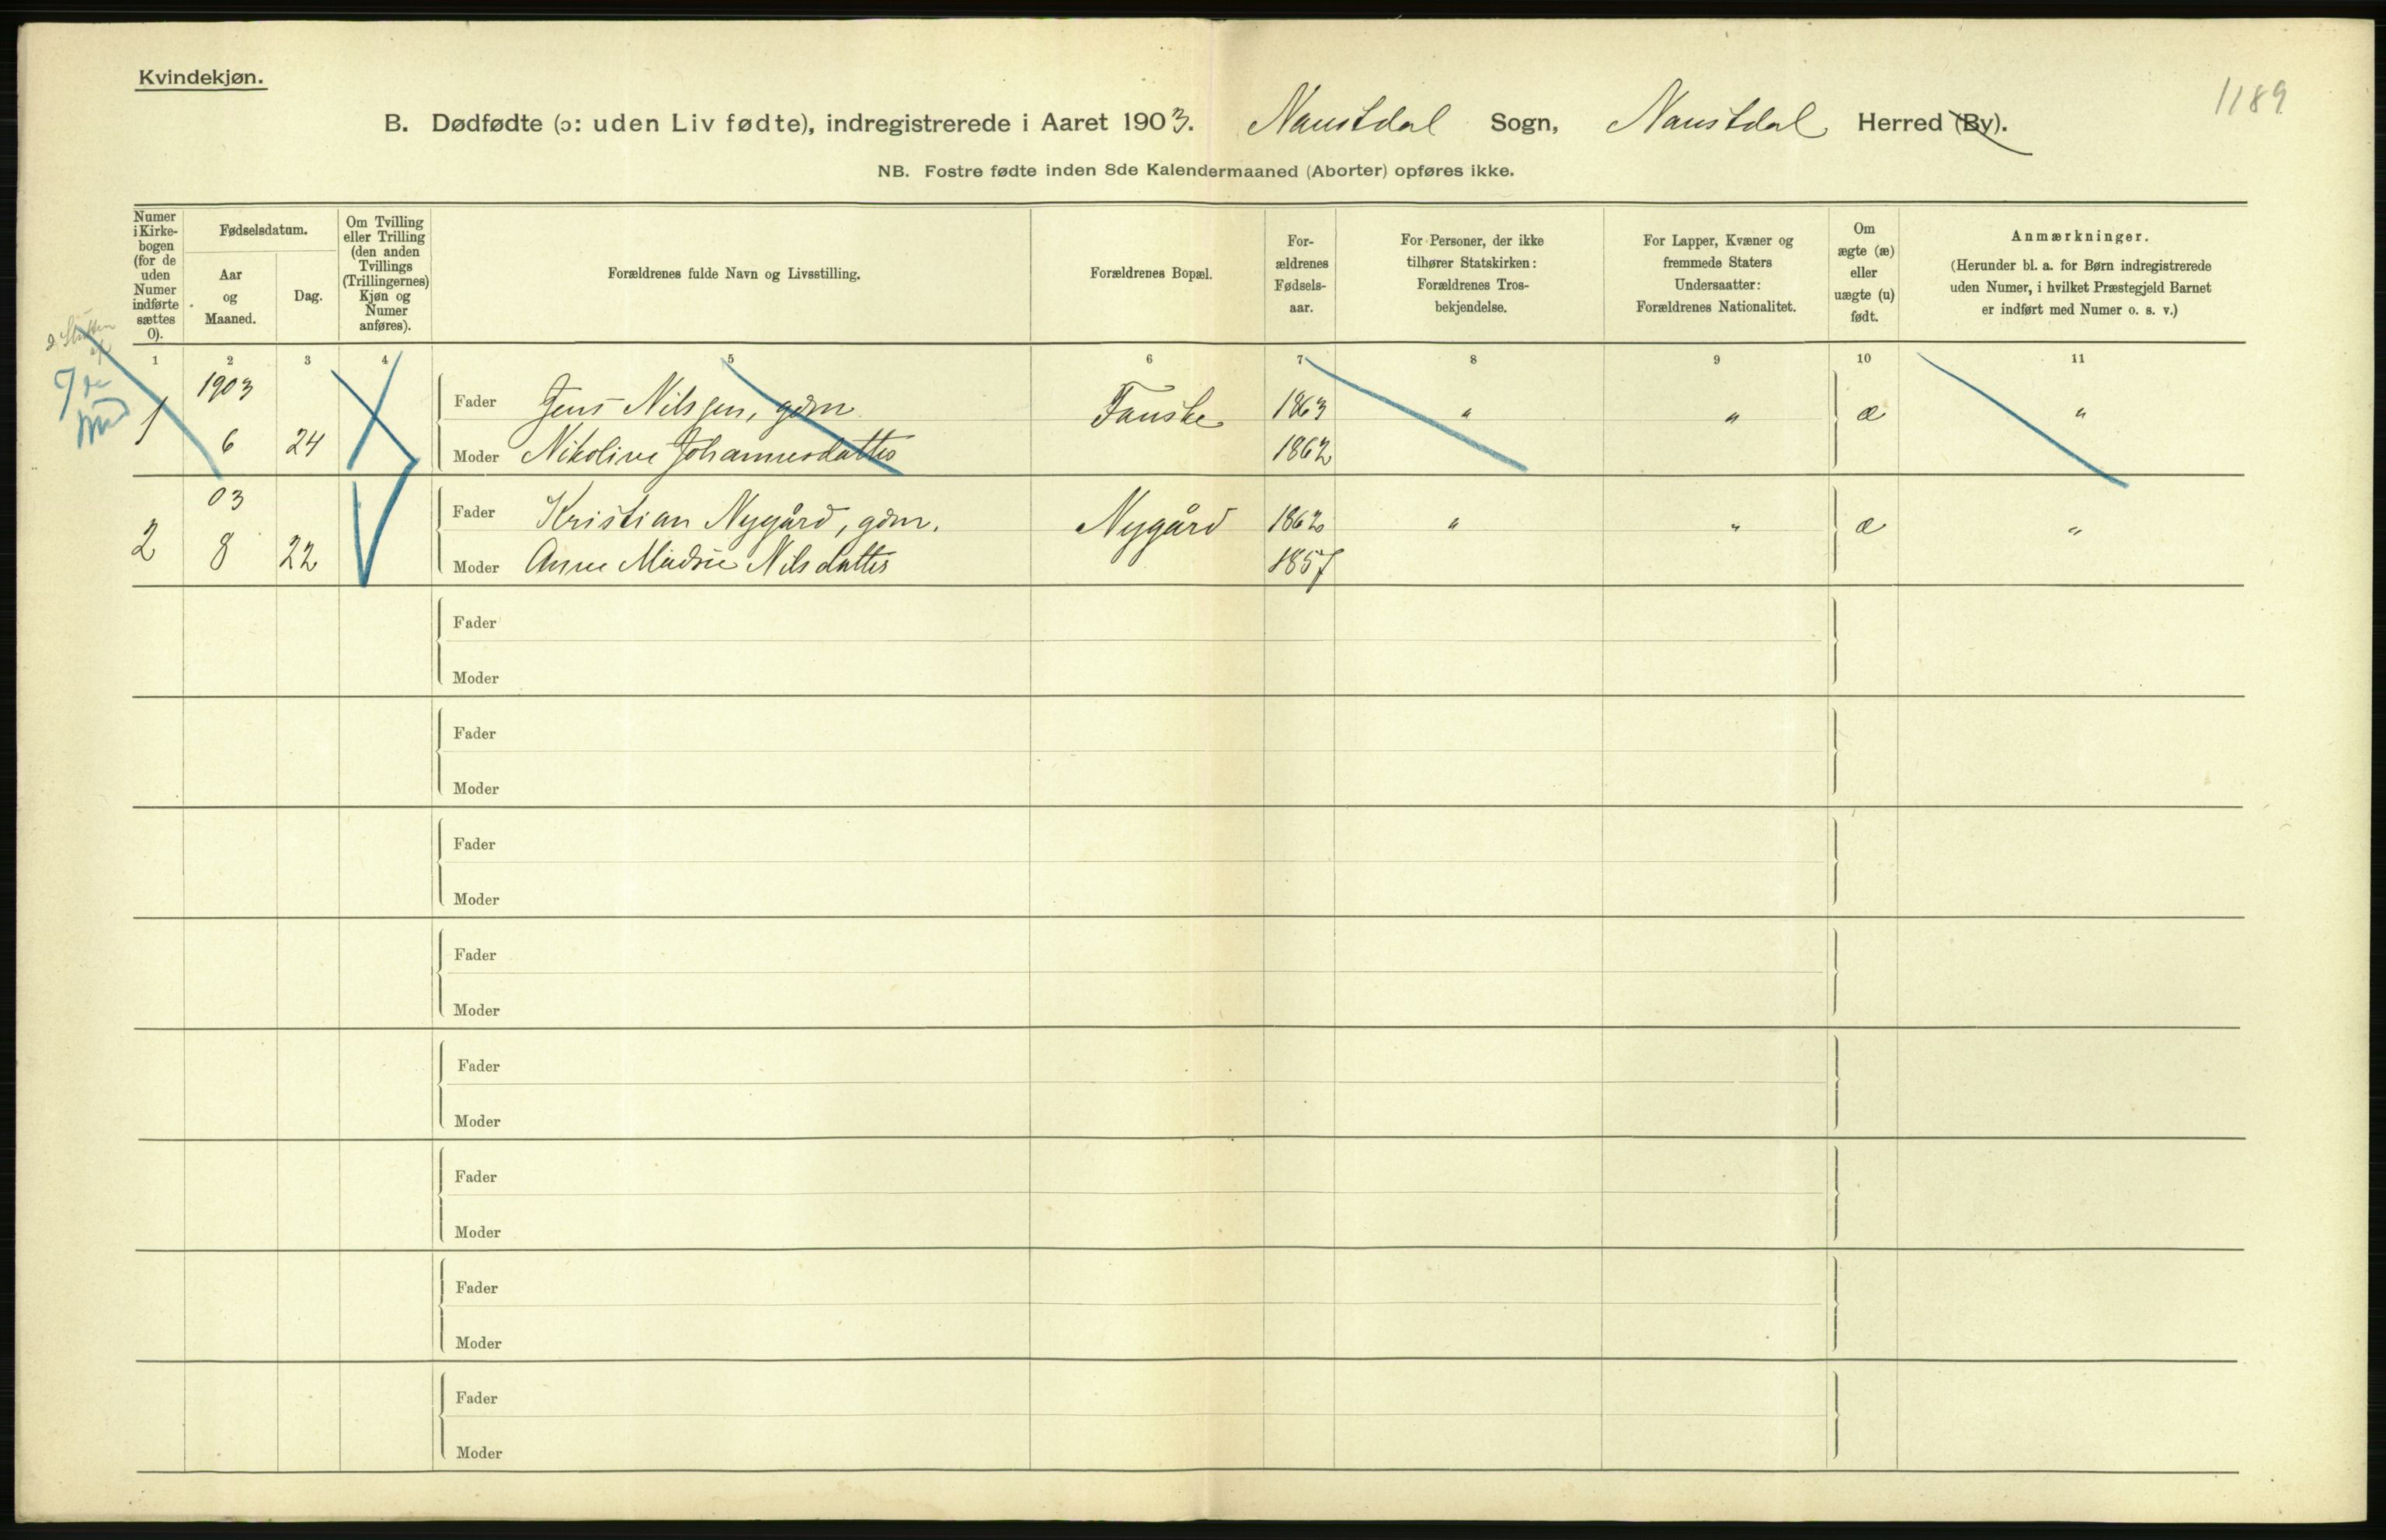 Kvindekjøn.
1189
B. Dødfødte (ɔ: uden Liv fødte), indregistrerede i Aaret 1903. Naustdal Sogn, Naustdal Herred (By).
NB. Fostre fødte inden 8de Kalendermaaned (Aborter) opføres ikke.
Numer i Kirke-bogen (for de uden Numer indførte sættes 0).
Fødselsdatum.
Aar og Maaned.
Dag.
Om Tvilling eller Trilling (den anden Tvillings (Trillingernes) Kjøn og Numer anføres).
Forældrenes fulde Navn og Livsstilling.
Forældrenes Bopæl.
For-ældrenes Fødsels-aar.
For Personer, der ikke tilhører Statskirken: Forældrenes Tros-bekjendelse.
For Lapper, Kvæner og fremmede Staters Undersaatter: Forældrenes Nationalitet.
Om ægte (æ) eller uægte (u) født.
Anmærkninger.
(Herunder bl. a. for Børn indregistrerede uden Numer, i hvilket Præstegjeld Barnet er indført med Numer o. s. v.)
1 2 3 4 5 6 7 8 9 10 11
7de
1903
1 6 24
Fader Jens Nilssen, gdm. Fauske 1863 " " æ "
Moder Nikoline Johannesdatter 1862
03
2 8 22
Fader Kristian Nygård, gdm. Nygård 1862 " " æ "
Moder Anne Nilsdatter 1857
Fader
Moder
Fader
Moder
Fader
Moder
Fader
Moder
Fader
Moder
Fader
Moder
Fader
Moder
Fader
Moder